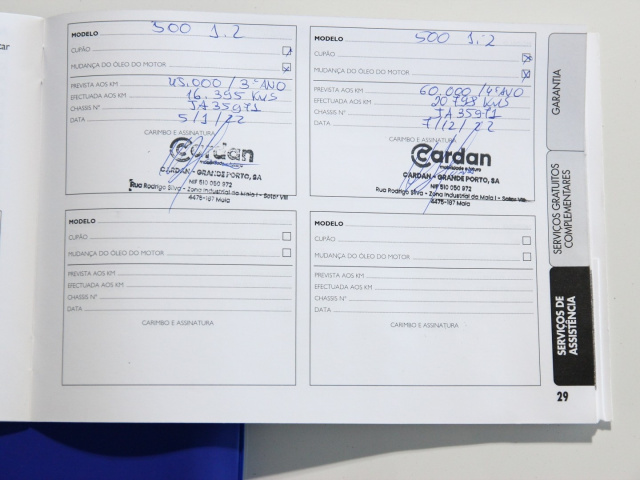 car
MODELO 500 1.2
CUPÃO
MUDANÇA DO ÓLEO DO MOTOR
PREVISTA AOS KM 45.000 / 3.º ANO
EFECTUADA AOS KM 16.395 KMS
CHASSIS Nº JA35971
DATA 5/1/22
CARIMBO E ASSINATURA
Cardan
CARDAN - GRANDE PORTO, SA
NIF 510 050 972
Rua Rodrigo Silva - Zona Industrial da Maia I - Sector VIII
4475-187 Maia
MODELO 500 1.2
CUPÃO
MUDANÇA DO ÓLEO DO MOTOR
PREVISTA AOS KM 60.000 / 4º ANO
EFECTUADA AOS KM 20798 KMS
CHASSIS Nº JA35971
DATA 7/12/22
CARIMBO E ASSINATURA
Cardan
CARDAN - GRANDE PORTO, SA
NIF 510 050 972
Rua Rodrigo Silva - Zona Industrial da Maia I - Sector VIII
4475-187 Maia
MODELO
CUPÃO
MUDANÇA DO ÓLEO DO MOTOR
PREVISTA AOS KM
EFECTUADA AOS KM
CHASSIS Nº
DATA
CARIMBO E ASSINATURA
MODELO
CUPÃO
MUDANÇA DO ÓLEO DO MOTOR
PREVISTA AOS KM
EFECTUADA AOS KM
CHASSIS Nº
DATA
CARIMBO E ASSINATURA
GARANTIA
SERVIÇOS GRATUITOS
COMPLEMENTARES
SERVIÇOS DE
ASSISTÊNCIA
29